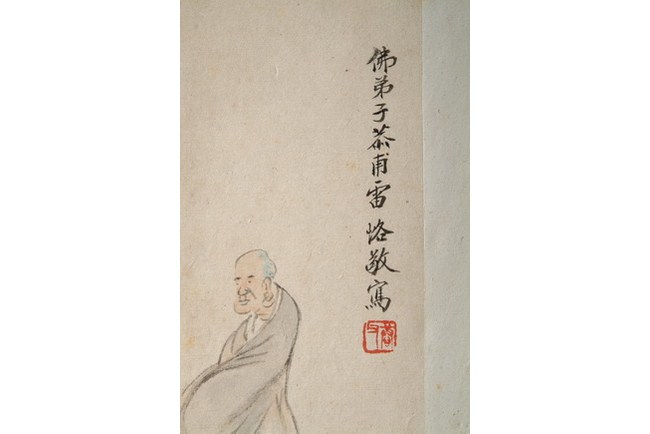 佛弟子恭甫雷恪敬寫